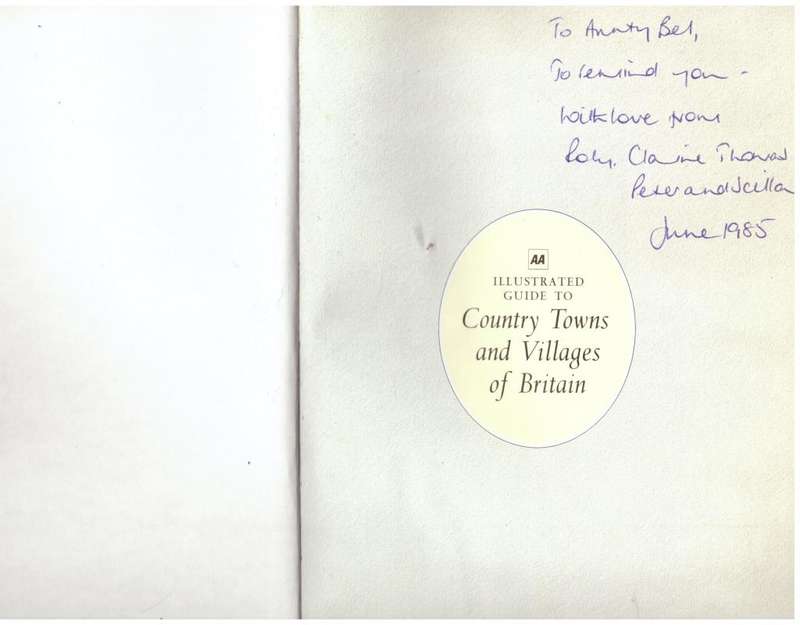 To Aunty Bel,
To remind you -
with love from
Claire Thomas
Peter and Scilla
June 1985
AA
ILLUSTRATED
GUIDE TO
Country Towns
and Villages
of Britain